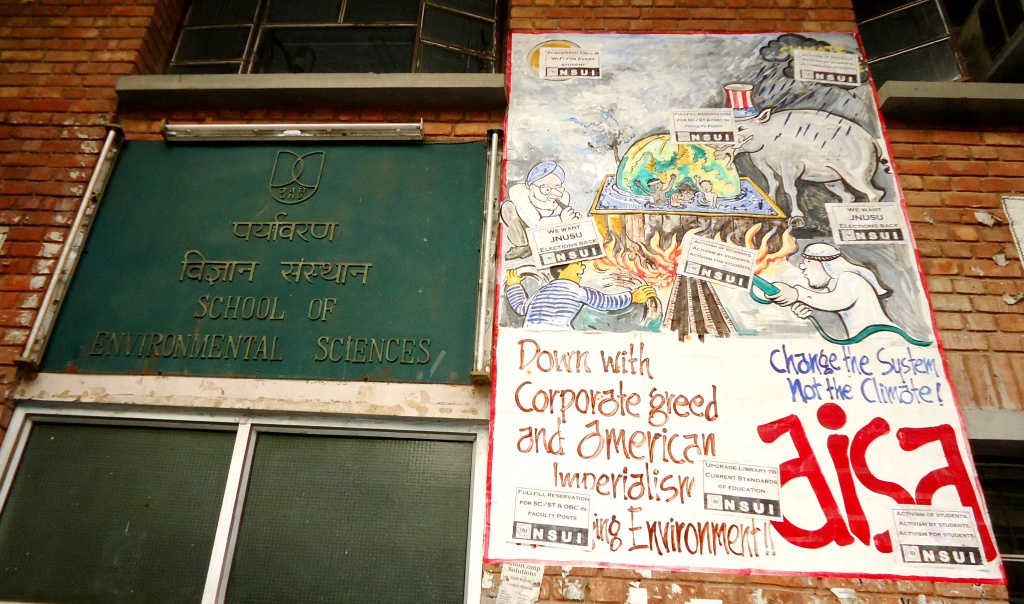 जनेवि
JNU
पर्यावरण
विज्ञान संस्थान
SCHOOL OF
ENVIRONMENTAL SCIENCES
PLACEMENT CELL &
WI-FI FOR EVERY
STUDENT
NSUI
CLIMATE
NSUI
FULLFILL RESERVATION
FOR SC/ST & OBC IN
FACULTY POSTS
NSUI
WE WANT
JNUSU
ELECTIONS BACK
NSUI
WE WANT
JNUSU
ELECTIONS BACK
NSUI
ACTIVISM OF STUDENTS,
ACTIVISM BY STUDENTS,
ACTIVISM FOR STUDENTS
NSUI
Down with
Corporate greed
and American
Imperialism
ing Environment!!
Change the System
Not the Climate!
aisa
UPGRADE LIBRARY TO
CURRENT STANDARDS
OF EDUCATION
NSUI
FULLFILL RESERVATION
FOR SC/ST & OBC IN
FACULTY POSTS
NSUI
ACTIVISM OF STUDENTS,
ACTIVISM BY STUDENTS,
ACTIVISM FOR STUDENTS
NSUI
Solutions